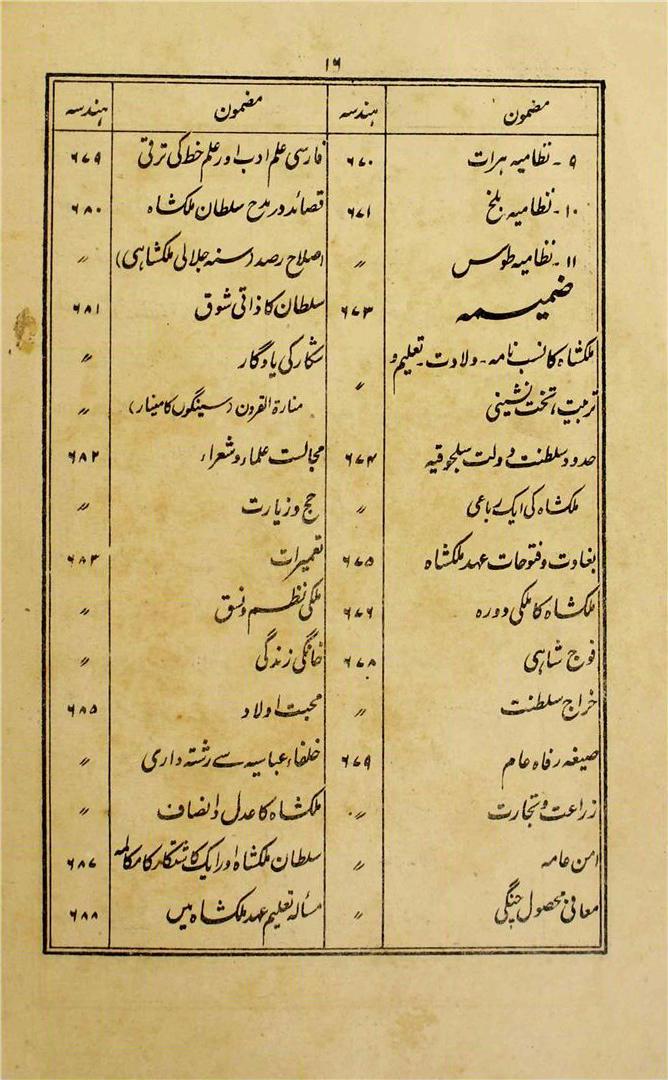 ۱۶
مضمون ہندسہ مضمون ہندسہ
۹ ۔ نظامیہ ہرات ۶۷۰
۱۰ ۔ نظامیہ بلخ ۶۷۱
۱۱ ۔ نظامیہ طوس 〃
ضمیمہ ۶۷۳
ملکشاہ کا نسب نامہ ۔ ولادت ۔ تعلیم و
تربیت، تخت نشینی 〃
حدود سلطنت دولت سلجوقیہ ۶۷۴
ملکشاہ کی ایک رباعی 〃
بغاوت و فتوحات عہد ملکشاہ ۶۷۵
ملکشاہ کا ملکی دورہ ۶۷۶
فوج شاہی ۶۷۸
خراج سلطنت 〃
صیغہ رفاہ عام ۶۷۹
زراعت و تجارت 〃
امن عامہ 〃
معافی محصول چنگی 〃
فارسی علم ادب اور علم خط کی ترقی ۶۷۹
قصائد در مدح سلطان ملکشاہ ۶۸۰
اصلاح رصد (سنہ جلالی ملکشاہی) 〃
سلطان کا ذاتی شوق ۶۸۱
شکار کی یادگار 〃
منارۃ القرون (سینگوں کا مینار) 〃
مجالست علماء و شعراء ۶۸۲
حج و زیارت 〃
تعمیرات ۶۸۳
ملکی نظم و نسق 〃
خانگی زندگی 〃
محبت اولاد ۶۸۵
خلفاء عباسیہ سے رشتہ داری 〃
ملکشاہ کا عدل و انصاف 〃
سلطان ملکشاہ اور ایک کاشتکار کا مکالمہ ۶۸۷
مسألہ تعلیم عہد ملکشاہ میں ۶۸۸